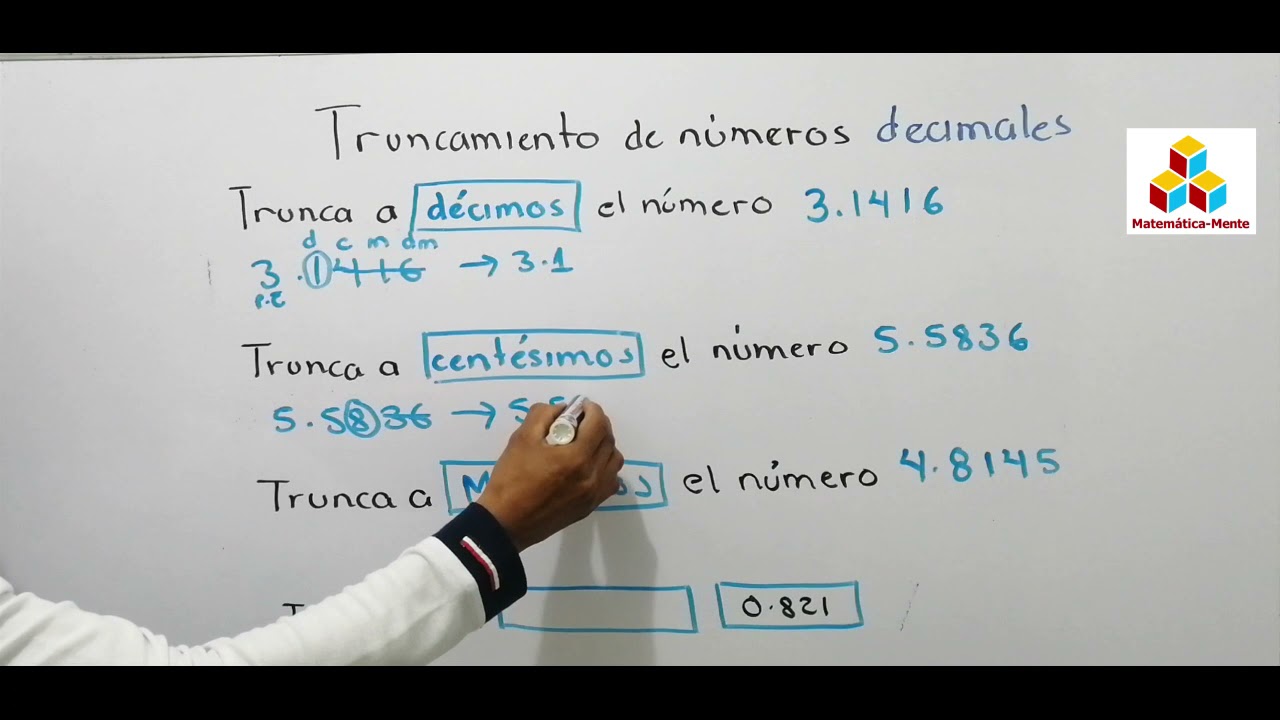 Truncamiento de números decimales
Matemática-Mente
Trunca a décimos el número 3.1416
d c m dm
3.1416 → 3.1
P.E
Trunca a centésimos el número 5.5836
5.5836 → 5.5
Trunca a el número 4.8145
0.821